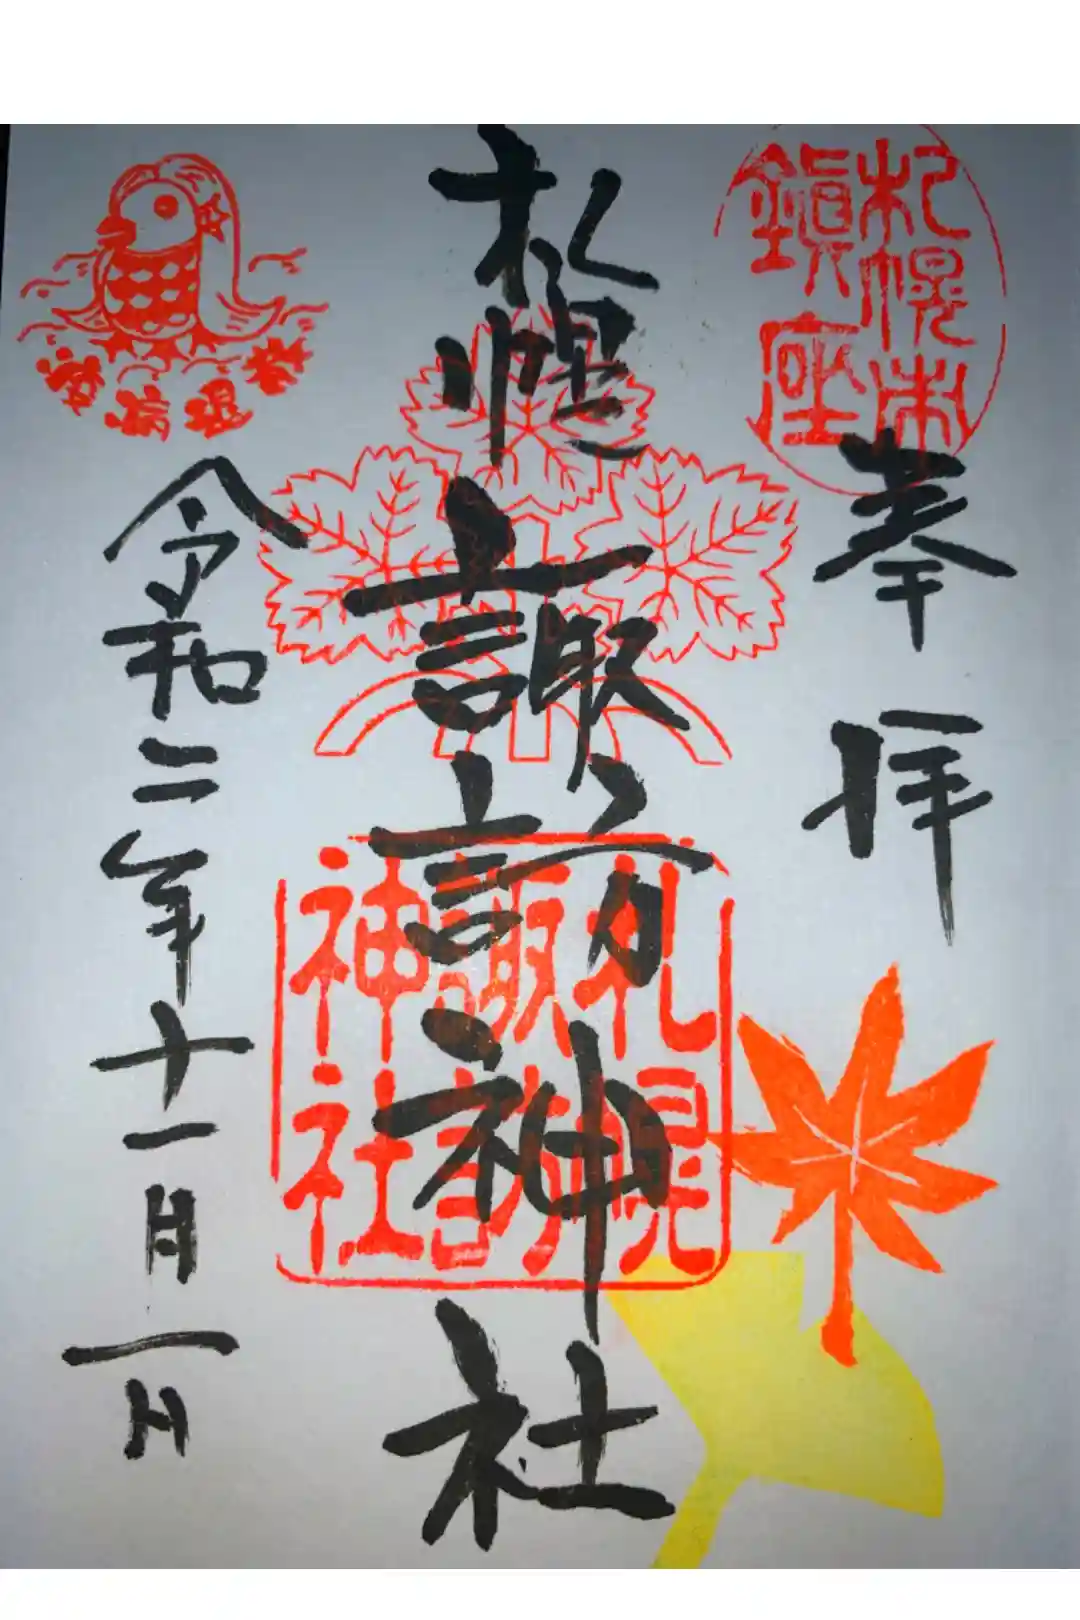 札幌市
鎮座
奉拝
札幌諏訪神社
札幌
諏訪
神社
令和二年十一月一日
疫病退散